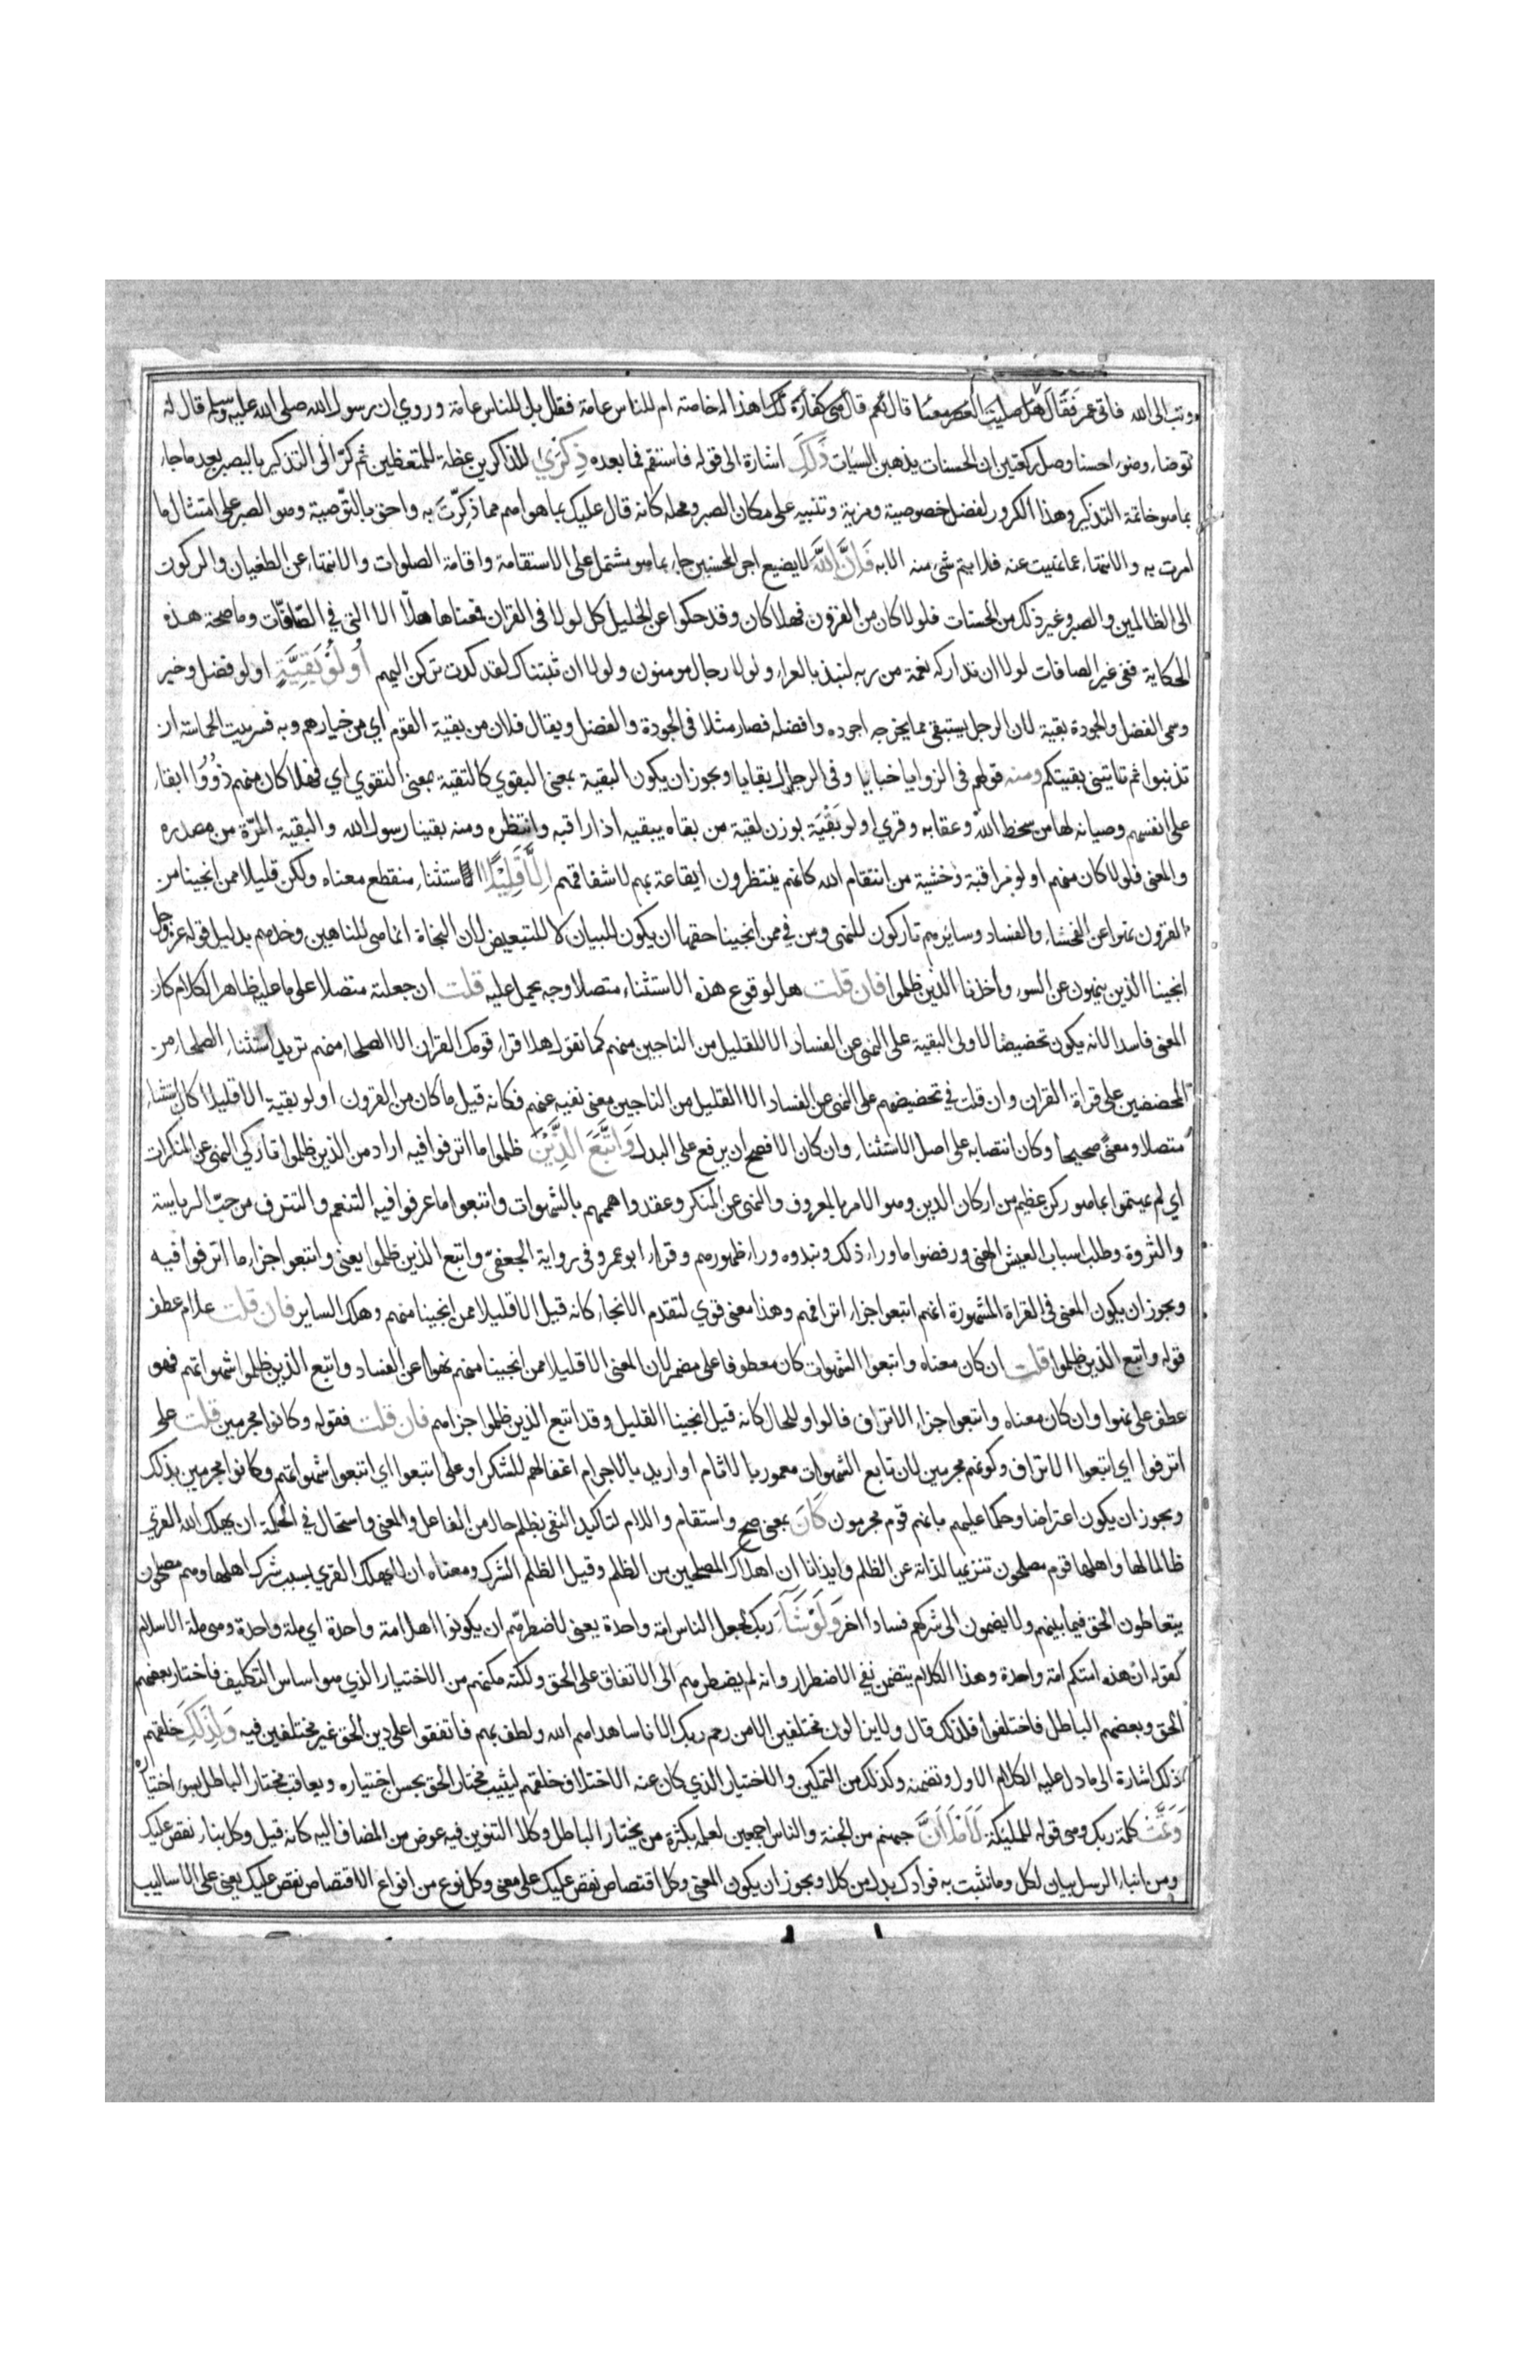 وتب الى الله فاتى عمر فقال هل صليت العصر معنا قال نعم قال هي كفارة لك اهذا له خاصة ام للناس عامة فقال بل للناس عامة وروي ان رسول الله صلى الله عليه وسلم قال له
توضاء وضوء احسنا وصل ركعتين ان الحسنات يذهبن السيات ذلك اشارة الى قوله فاستقم فما بعده ذكرى للذاكرين عظة للمتعظين ثم كر الى التذكير بالبصبر بعد ما جاء
بما هو خاتمة التذكير وهذا الكرور لفضل خصوصية ومزية وتنبيه على مكان الصبر ومحله كانه قال عليك بما هو اهم مما ذكرت به واحق بالتوصية وهو الصبر على امتثال ما
امرت به والانتهاء عما نهيت عنه فلا يتم شيء منه الا به فان الله لا يضيع اجر المحسنين جاء بما هو مشتمل على الاستقامة واقامة الصلوات والانتهاء عن الطغيان والركون
الى الظالمين والصبر وغير ذلك من الحسنات فلولا كان من القرون فهلا كان وقد حكوا عن الخليل كل لولا في القران فمعناها هلا الا التي في الصافات وما صحة هذه
الحكاية ففي غير الصافات لولا ان تداركه نعمة من ربه لنبذ بالعراء ولولا رجال مومنون ولولا ان ثبتناك لقد كدت تركن اليهم أولو بقية اولو فضل وخير
وسمى الفضل والجودة بقية لان الرجل يستبقي مما يخرجه اجوده وافضله فصار مثلا في الجودة والفضل ويقال فلان من بقية القوم اي من خيارهم وبه فسر بيت الحماسة ان
تذنبوا ثم تاتيني بقيتكم ومنه قولهم في الزوايا خبايا وفي الرجال بقايا ويجوز ان يكون البقية بمعنى البقوي كالتقية بمعنى التقوي اي فهلا كان منهم ذووا ابقاء
على انفسهم وصيانة لها من سخط الله وعقابه وقري اولو بقية بوزن لقية من بقاه يبقيه اذا راقبه وانتظره ومنه بقينا رسول الله والبقية المرة من مصدره
والمعنى فلولا كان منهم اولو مراقبة وخشية من انتقام الله كانهم ينتظرون ايقاعه بهم لاشفاقهم الا قليلا استثناء منقطع معناه ولكن قليلا ممن انجينا من
القرون نهوا عن الفحشاء والفساد وسايرهم تاركون للنهي ومن في ممن انجينا حقها ان يكون للبيان لا للتبعيض لان النجاة انما هي للناهين وحدهم بدليل قوله عز وجل
انجينا الذين ينهون عن السوء واخذنا الذين ظلموا فان قلت هل لوقوع هذه الاستثناء متصلا وجه يحمل عليه قلت ان جعلته متصلا على ما عليه ظاهر الكلام كان
المعنى فاسدا لانه يكون تحضيضا لاولى البقية على النهي عن الفساد الا للقليل من الناجين منهم كما تقول هلا قراء قومك القران الا الصلحاء منهم تريد استثناء الصلحاء من
المحضضين على قراة القران وان قلت في تحضيضهم على النهي عن الفساد الا القليل من الناجين معنى نفيه عنهم فكانه قيل ما كان من القرون اولو بقية الا قليلا كان استثناء
متصلا ومعنى صحيحا وكان انتصابه على اصل الاستثناء وان كان الافصح ان يرفع على البدل واتبع الذين ظلموا ما اترفوا فيه اراد من الذين ظلموا تاركي النهي عن المنكرات
اي لم يهتموا بما هو ركن عظيم من اركان الدين وهو الامر بالمعروف والنهي عن المنكر وعقدوا هممهم بالشهوات واتبعوا ما عرفوا فيه التنعم والتترف من حب الرياسة
والثروة وطلب اسباب العيش الهني ورفضوا ما وراء ذلك ونبذوه وراء ظهورهم وقراء ابو عمرو في رواية الجعفي واتبع الذين ظلموا يعني واتبعوا جزاء ما اترفوا فيه
ويجوز ان يكون المعنى في القراة المشهورة انهم اتبعوا جزاء اترافهم وهذا معنى قوي لتقدم الانجاء كانه قيل الا قليلا ممن انجينا منهم وهلك الساير فان قلت علام عطف
قوله واتبع الذين ظلموا قلت ان كان معناه واتبعوا الشهوات كان معطوفا على مضمر لان المعنى الا قليلا ممن انجينا منهم نهوا عن الفساد واتبع الذين ظلموا شهواتهم فهو
عطف على نهوا وان كان معناه واتبعوا جزاء الاتراف فالواو للحال كانه قيل انجينا القليل وقد اتبع الذين ظلموا جزاهم فان قلت فقوله وكانوا مجرمين قلت على
اترفوا اي اتبعوا الاتراف وكونهم مجرمين لان تابع الشهوات مغمور بالاثام او اريد بالاجرام اغفالهم للشكر او على اتبعوا اي اتبعوا شهواتهم وكانوا مجرمين بذلك
ويجوز ان يكون اعتراضا وحكما عليهم بانهم قوم مجرمون كان بمعنى صح واستقام واللام لتاكيد النفي بظلم حال من الفاعل والمعنى واستحال في الحكمة ان يهلك الله القرى
ظالما لها واهلها قوم مصلحون تنزيها لذاته عن الظلم وايذانا ان اهلاك المصلحين من الظلم وقيل الظلم الشرك ومعناه ان لا يهلك القرى بسبب شرك اهلها وهم مصلحون
يتعاطون الحق فيما بينهم ولا يضمون الى شركهم فسادا اخر ولو شاء ربك لجعل الناس امة واحدة يعني لاضطرهم ان يكونوا اهل امة واحدة اي ملة واحدة وهي ملة الاسلام
كقوله ان هذه امتكم امة واحدة وهذا الكلام يتضمن نفي الاضطرار وانه لم يضطرهم الى الاتفاق على الحق ولكنه مكنهم من الاختيار الذي هو اساس التكليف فاختار بعضهم
الحق وبعضهم الباطل فاختلفوا فلذلك قال ولا يزالون مختلفين الا من رحم ربك الا ناسا هداهم الله ولطف بهم فاتفقوا على دين الحق غير مختلفين فيه ولذلك خلقهم
ذلك اشارة الى ما دل عليه الكلام الاول وتضمنه وكذلك من التمكين والاختيار الذي كان عنه الاختلاف خلقهم ليثيب مختار الحق بحسن اختياره ويعاقب مختار الباطل بسوء اختياره
وتمت كلمة ربك وهي قوله للمليكة لاملان جهنم من الجنة والناس اجمعين لعلمه بكثرة من يختار الباطل وكلا التنوين فيه عوض من المضاف اليه كانه قيل وكل بناء نقص عليك
ومن انباء الرسل بيان لكل وما نثبت به فوادك بدل من كلا ويجوز ان يكون المعنى وكل اقتصاص نقص عليك على معنى وكل نوع من انواع الاقتصاص نقص عليك يعني على الاساليب